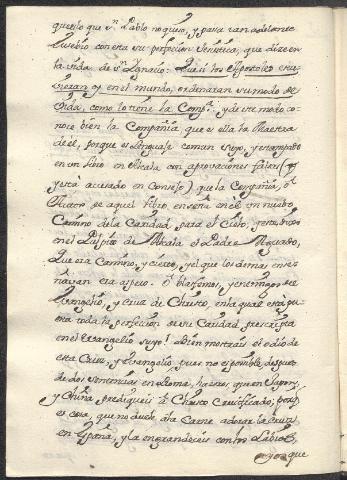 querlo que Sn. Pablo no quiso, y passa tan adelante
Eusebio con esta su perfeccion Jesuitica, que dize en
la vida de Sn. Ygnacio: Que si los Apostoles estu
viezan oy en el mundo, ordenaran su modo de
vida, como lo tiene la Compa. y de este modo co-
noce bien la Compañia que es ella la Maestra
de el, porque es lenguaje comun suyo, y estampado
en un libro en Alcala con aprovaciones falsas (y
està acusado en Consejo) que la Compañia, ò
Autor de aquel libro, enseña en èl un nuebo
Camino de la Caridad para el Cielo; y esto dixo
en el Pulpito de Alcala el Padre Aguado,
Que era Camino, y cierto, y el que los demas ense-
ñavan era aspero. O blasfemos, y enemigos del
Evangelio, y Cruz de Christo, en la qual està pu
esta toda la perfeccion de su Caridad prescripta
en el Evangelio suyo! Bien mostrais el odio de
esta Cruz, y Evangelio, pues no es posible, despues
de dos Sentencias en Roma, hazer, que en Japon,
y China prediqueis à Christo Crucificado; porq
es cosa, que no duele à la Carne adorar la Cruz
en España, y la engrandeceis con los Labios,
y porque